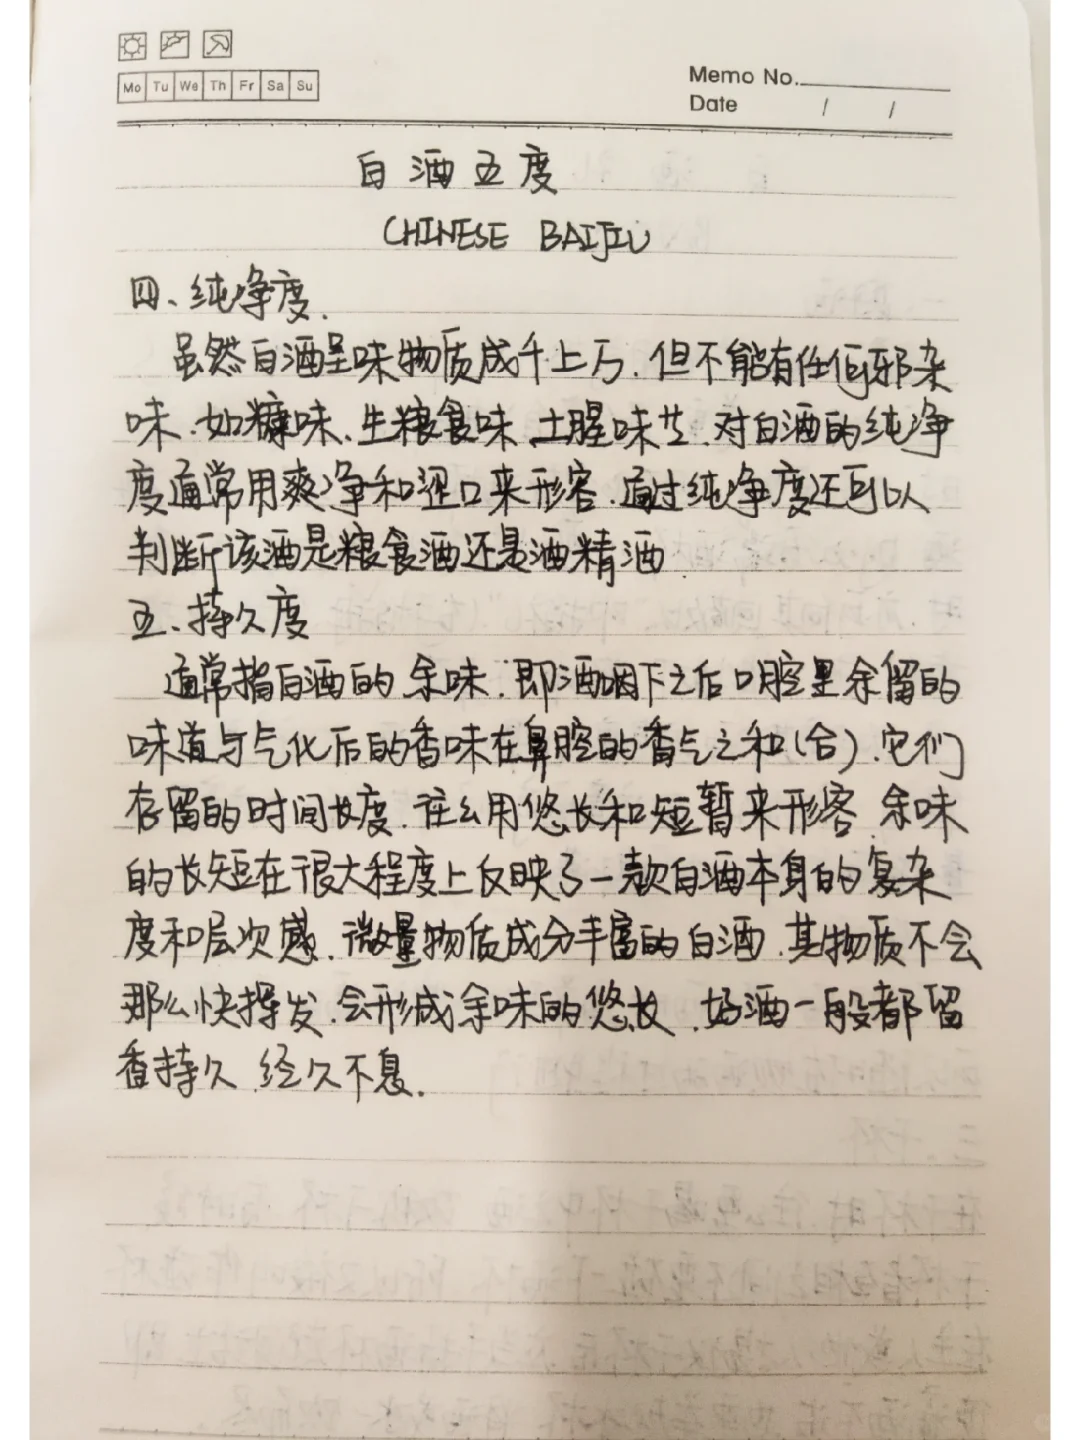 Mo Tu We Th Fr Sa Su
Memo No.
Date / /
白酒五度
CHINESE BAIJIU
四、纯净度.
虽然白酒呈味物质成千上万.但不能有任何邪杂
味.如糠味、生粮食味、土腥味艹.对白酒的纯净
度通常用爽净和涩口来形容.通过纯净度还可以
判断该酒是粮食酒还是酒精酒.
五、持久度
通常指白酒的余味.即酒咽下之后口腔里余留的
味道与气化后的香味在鼻腔的香气之和(合).它们
存留的时间长度.往么用悠长和短暂来形容.余味
的长短在很大程度上反映了一款白酒本身的复杂
度和层次感.微量物质成分丰富的白酒.其物质不会
那么快挥发.会形成余味的悠长.好酒一般都留
香持久.经久不息.